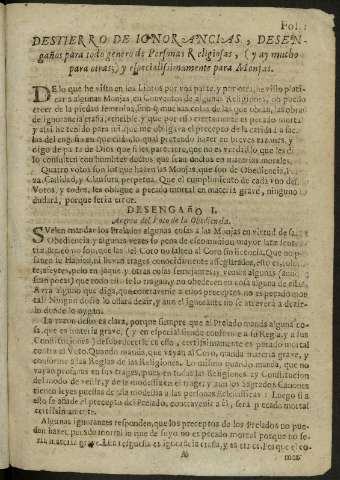 Fol. 1
DESTIERRO DE IGNORANCIAS, DESEN-
gaños para todo genero de Personas Religiosas, ( y ay mucho
para otras;) y especialissimamente para Monjas.
DE lo que he visto en los Libros por una parte, y por otra, he visto plati-
car a algunas Monjas, en Conventos de algunas Religiones, no puedo
creer de la piedad femenina, sino que muchas cosas de las que obran, las obran
de ignorancia crassa, vencible, y que por esso cometen pecado mortal
y assi he tenido para mi, que me obligava el precepto de la caridad a sacar-
las del engaño en que
digo de parte de Dios que si les pareciere, que no es verdad lo que les di-
lo consulten con hombres doctos que sean doctos en materias morales.
Quatro votos son los que hazen las Monjas, que son de Obediencia, Po-
breza, Castidad, y Clausura perpetua. Que el cumplimiento de cada uno de
Votos, y todos, les obligue a pecado mortal en materia grave, ninguno lo
dudará, porque seria error.
DESENGAÑO I.
Acerca del Voto de la Obediencia.
SVelen mandar los Prelados algunas cosas a las Monjas en virtud de santa
Obediencia, y algunas vezes so pena de excomunion mayor latæ senten-
tiæ, como son, que las del Coro no falten al Coro sin licencia, Que no pa-
ssen el Habito, ni lleven trages conocidamente
y que todo esto se lo nieguen, no obedecen en cosa alguna de ellas.
Avrá alguno que diga, que contravenir a estos preceptos no es pecado mor-
tal? Ningun docto lo osará dezir, y aun el ignorante no se atreverá a dezir-
lo donde lo oygan.
La razon desto es clara, porque siempre que el Prelado manda alguna co-
sa, que es materia grave, ( y en especial siendo conforme a su Regla, y a sus
Constituciones ) desobedecerle en esto, certissimamente es pecado mortal
contra el Voto. Quando manda, que vayan al Coro, manda materia grave, y
conforme a las Reglas de las Religiones. Lo mismo quando manda, que no
vayan profanas en sus trages, pues en todas las Religiones ay Constitucion
del modo de vestir, y de la modestia en el trage; y aun los Sagrados Canones
tienen leyes puestas de esta modestia a las personas Eclesiasticas: Luego si a
esto se añade el precepto del Prelado, contravenir a él, será pecado mortal
certissimamente.
Algunas ignorantes responden, que los preceptos de los Prelados no pue-
den hazer pecado mortal lo que de suyo no es pecado mortal porque no se-
ria materia grave. Esta respuesta es ignorancia crassa, y es error. Porque el co-
A
mer